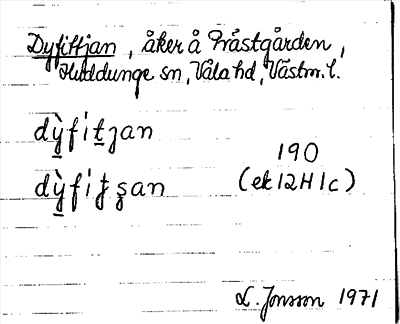 Dyfittjan, åker å Prästgården,
Huddunge sn, Våla hd, Västm. l.
dỳ̱fit̠ȷan
190
dỳ̱fiţşan
(ek 12H1c)
L. Jonsson 1971